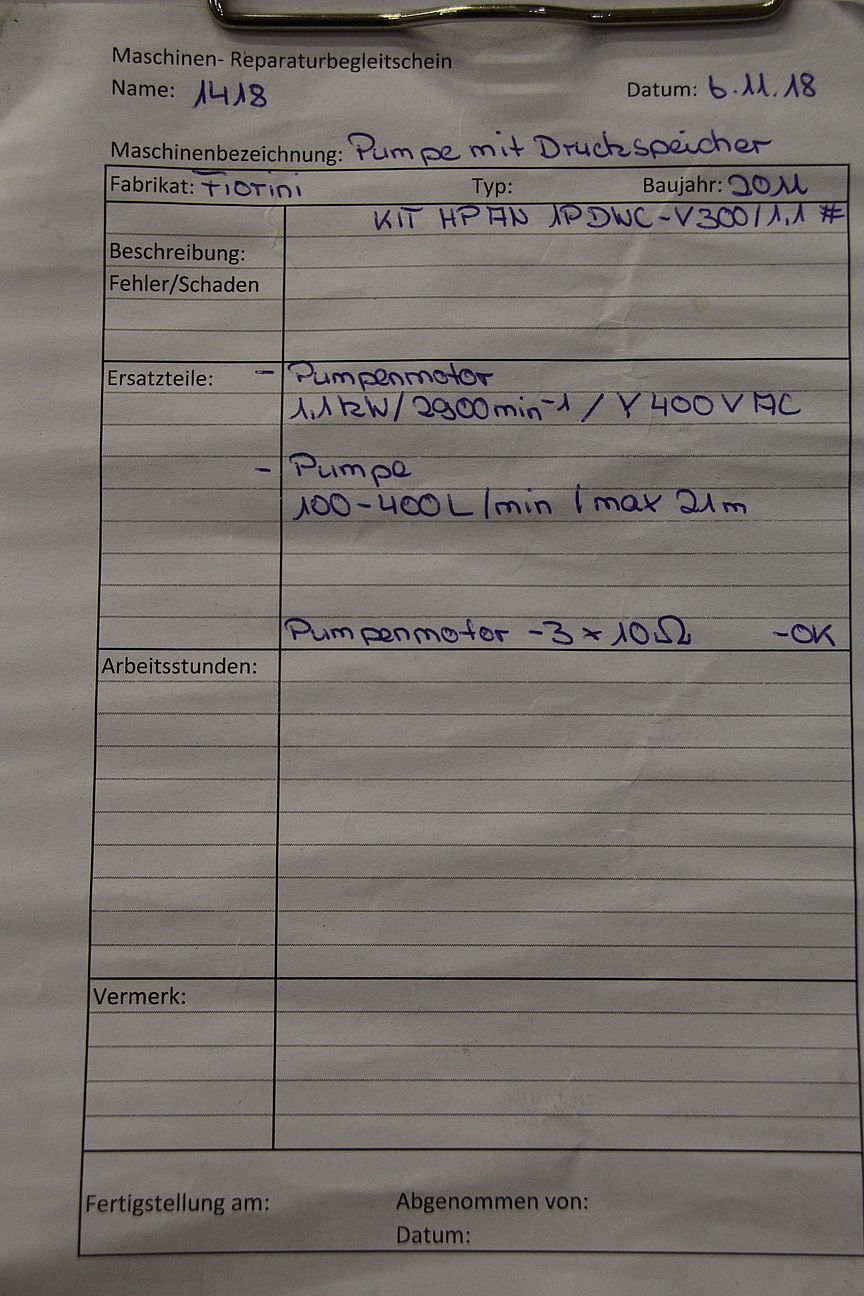 Maschinen- Reparaturbegleitschein
Name: 1418 Datum: 6.11.18
Maschinenbezeichnung: Pumpe mit Druckspeicher
Fabrikat: Fiorini Typ: Baujahr: 2011
KIT HP AN 1P DWC-V300/1,1 #
Beschreibung:
Fehler/Schaden
Ersatzteile: - Pumpenmotor
1,1kW/2900min-1 / Y 400V AC
- Pumpe
100-400L/min / max 21m
Pumpenmotor -3 x 10Ω -OK
Arbeitsstunden:
Vermerk:
Fertigstellung am: Abgenommen von:
Datum: